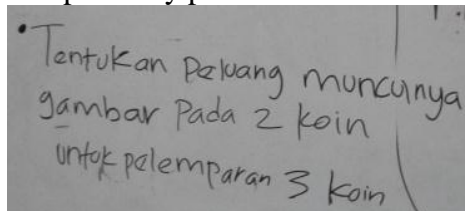 Tentukan Peluang muncunya
gambar Pada 2 koin
untuk pelemparan 3 koin